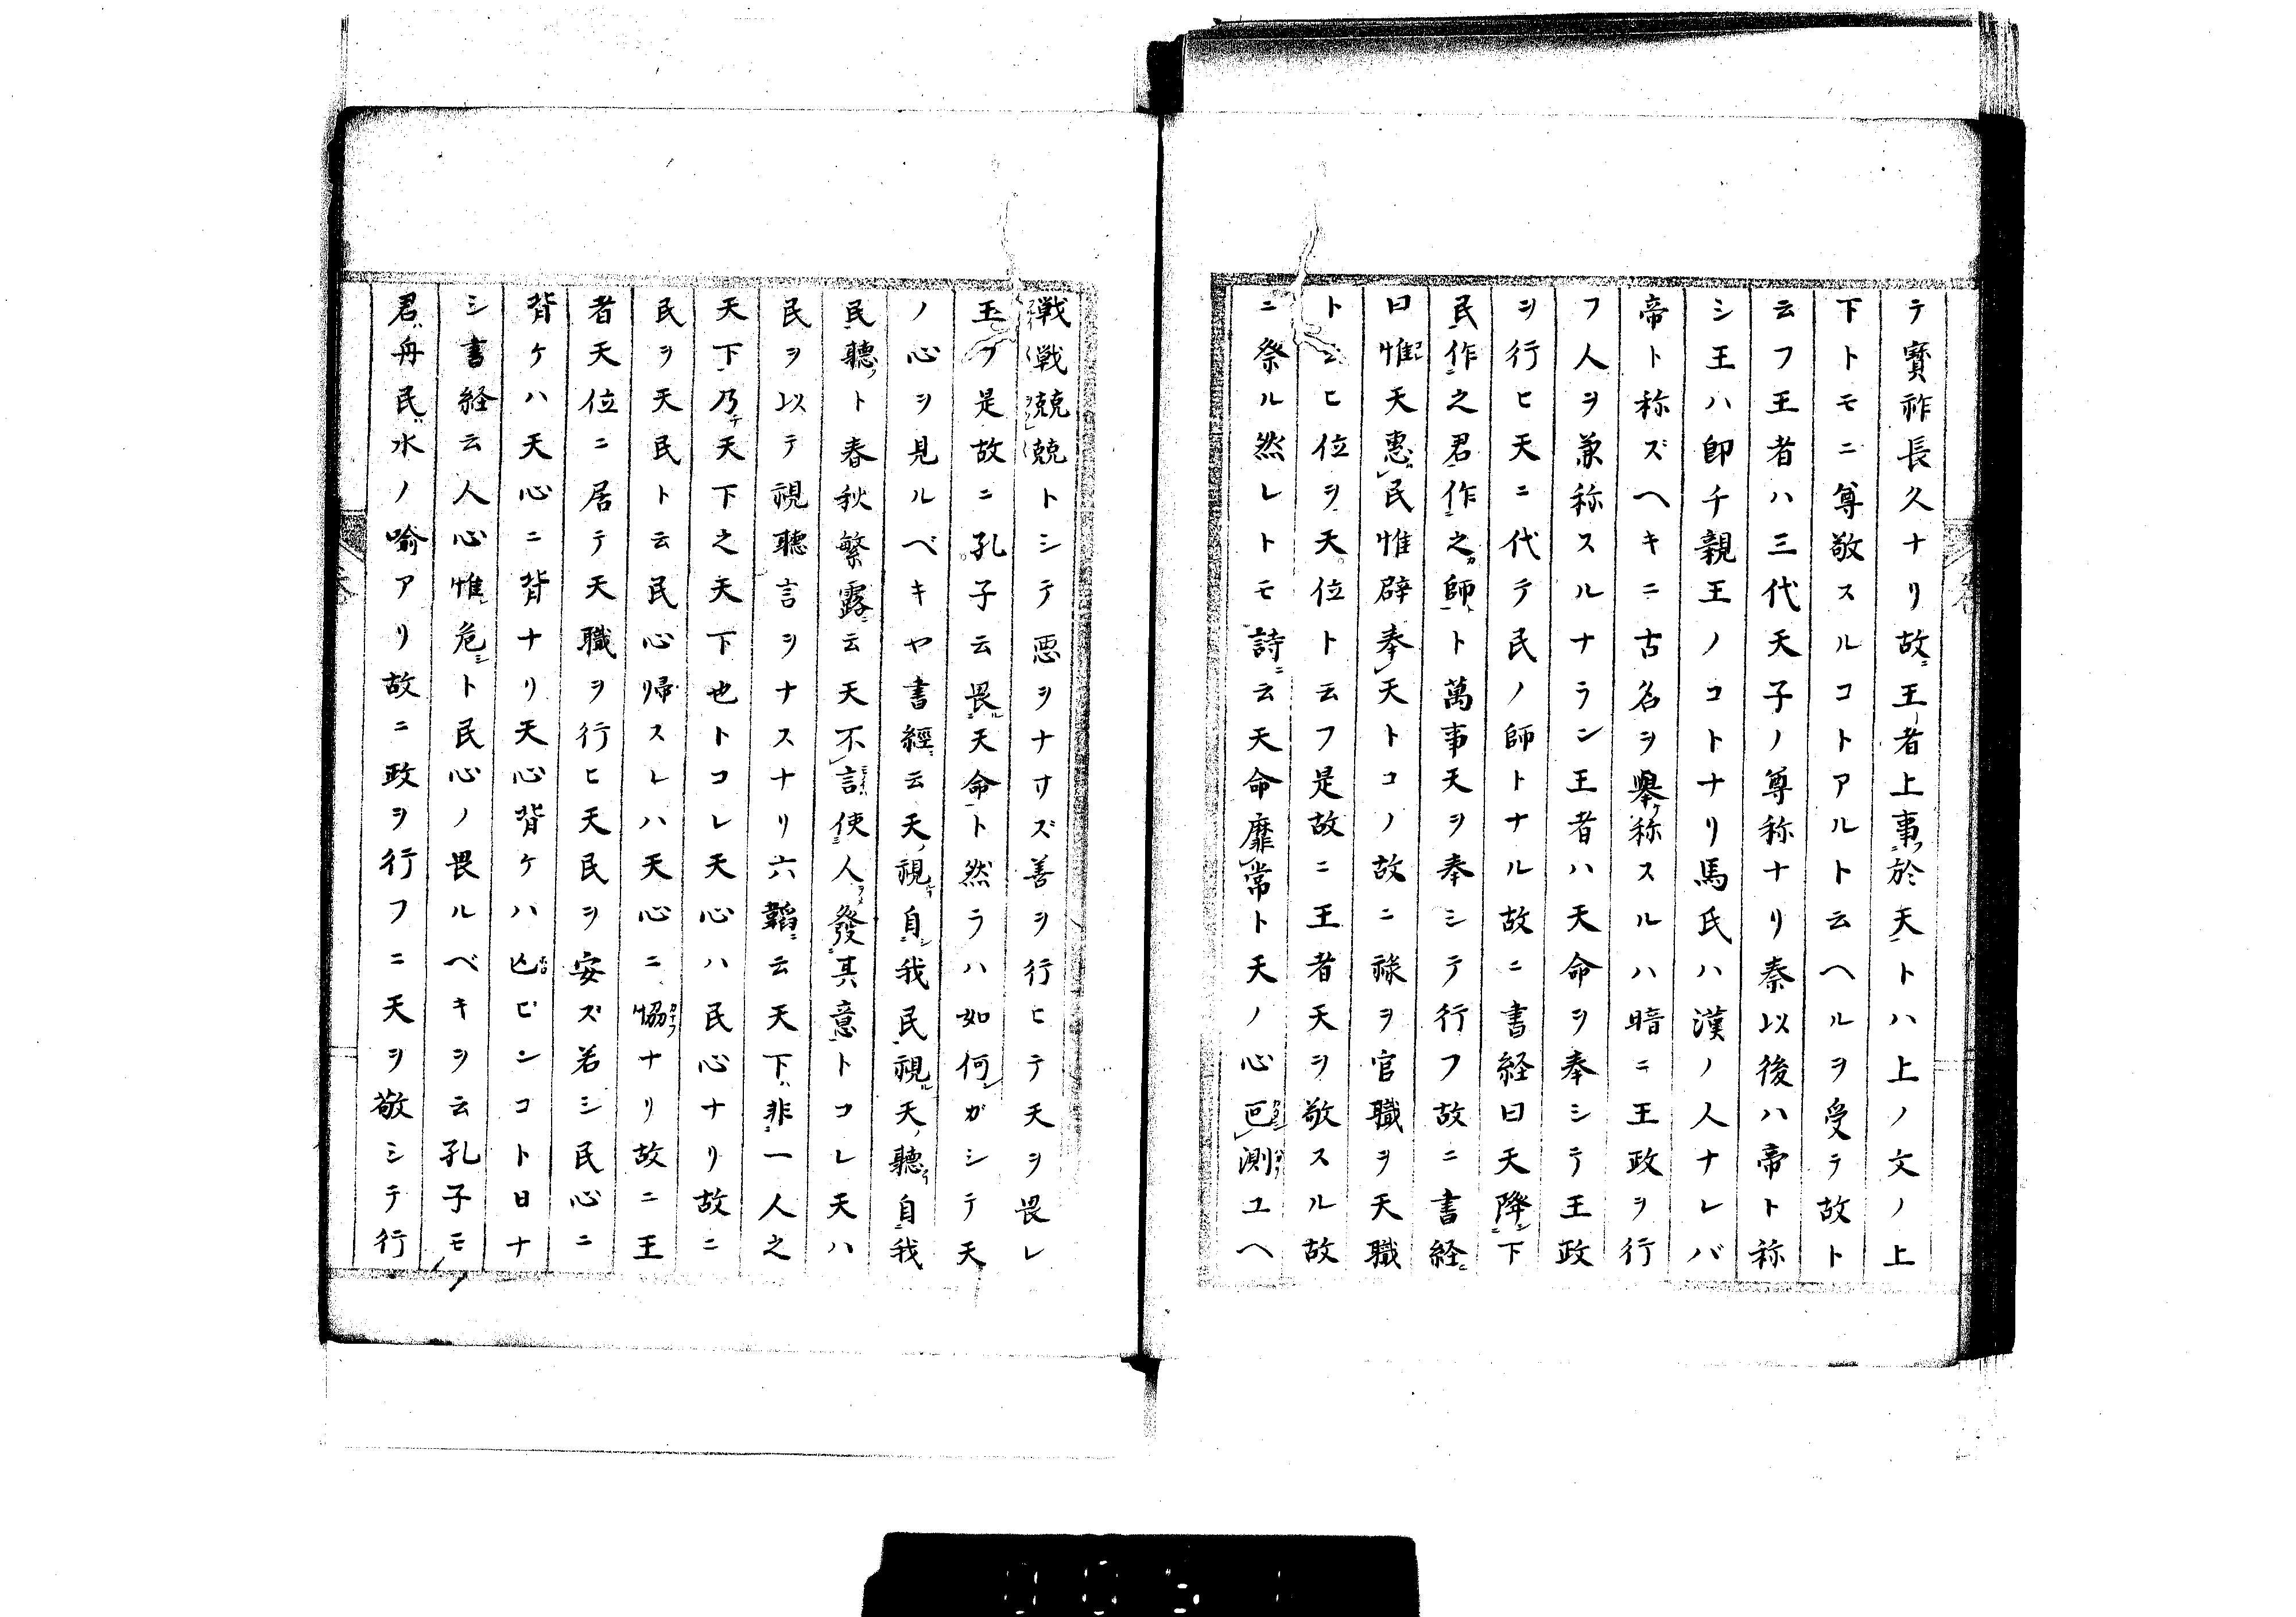 テ寳祚長久ナリ故ニ王者上事於天トハ上ノ文ノ上
下トモニ尊敬スルコトアルト云ヘルヲ受テ故ト
云フ王者ハ三代天子ノ尊称ナリ秦以後ハ帝ト称
シ王ハ即チ親王ノコトナリ馬氏ハ漢ノ人ナレバ
帝ト称ズヘキニ古名ヲ擧称スルハ暗ニ王政ヲ行
フ人ヲ兼称スルナラン王者ハ天命ヲ奉シテ王政
ヲ行ヒ天ニ代テ民ノ師トナル故ニ書経曰天降下
民作之君作之師ト萬事天ヲ奉シテ行フ故ニ書経
曰惟天惠民惟辟奉天トコノ故ニ祿ヲ官職ヲ天職
トヒ位ヲ天位ト云フ是故ニ王者天ヲ敬スル故
ニ祭ル然レトモ詩云天命靡常ト天ノ心叵測ユヘ
戦戦兢兢トシテ悪ヲナサズ善ヲ行ヒテ天ヲ畏レ
玉フ是故ニ孔子云畏天命ト然ラハ如何ガシテ天
ノ心ヲ見ルベキヤ書經云天視自我民視天聽自我
民聽ト春秋繁露云天不言使人發其意トコレ天ハ
民ヲ以テ視聽言ヲナスナリ六韜云天下非一人之
天下乃天下之天下也トコレ天心ハ民心ナリ故ニ
民ヲ天民ト云民心帰スレハ天心ニ恊ナリ故ニ王
者天位ニ居テ天職ヲ行ヒ天民ヲ安ズ若シ民心ニ
背ケハ天心ニ背ナリ天心背ケハ亾ビンコト日ナ
シ書経云人心惟危ト民心ノ畏ルベキヲ云孔子モ
君舟民水ノ喩アリ故ニ政ヲ行フニ天ヲ敬シテ行